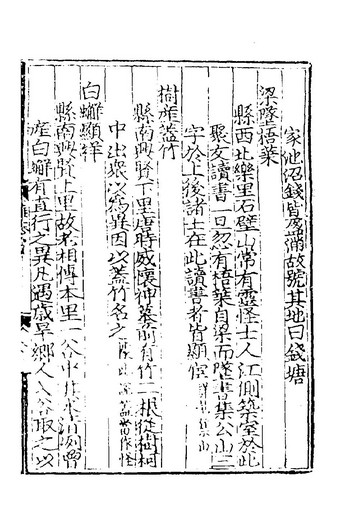 家池沼錢皆为滿故號其地曰錢塘
梁墜梧葉
縣西北樂里石壁山常有靈怪士人江側築室於此
聚友讀書一日忽有梧葉自梁而墜書集公山二
字於上後諸士在此讀書者皆顯宦
樹產蓋竹
縣南興賢下里唐時威懷神墓前有竹二根從樹桐
中出衆以爲異因以蓋竹名之
白蠏顯祥
縣南興賢上里故老相傳本里一谷中其水清冽曾
產白蠏有直行之異凡遇歲旱鄉人入谷取之以